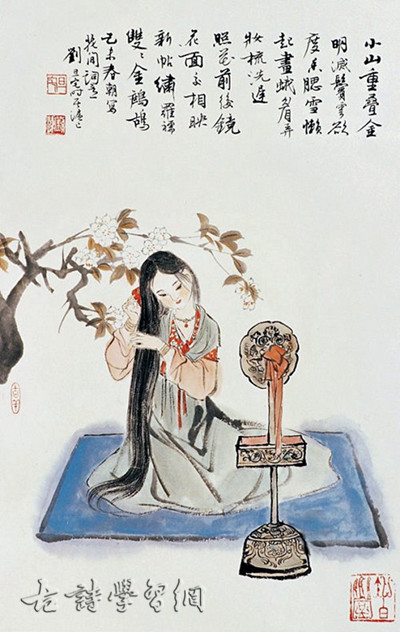 小山重疊金
明滅鬢雲欲
度香腮雪懶
起畫蛾眉弄
妝梳洗遲
照花前後鏡
花面交相映
新帖繡羅襦
雙〻金鷓鴣
乙未春朝寫
花間詞意
劉旦宅
詩學智網